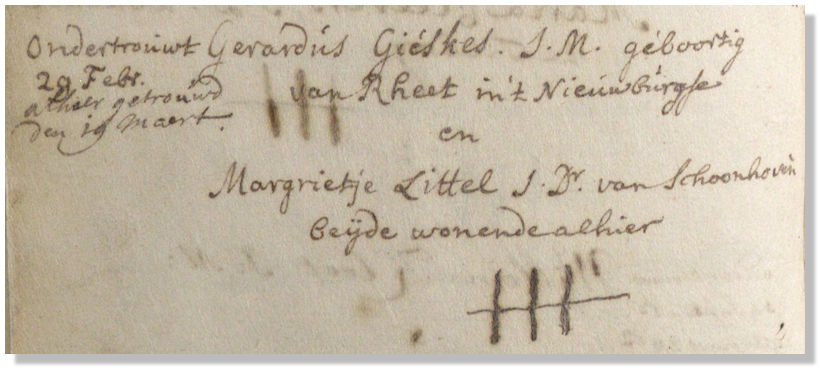 Ondertrouwt Gerardus Gieskes. J. M. geboortig
29 Febr.
alhier getrouwd
den 19 Maert.
van Rheet in't Nieuwburgse
en
Margrietje Littel J. Dr. van Schoonhoven
beyde wonende alhier